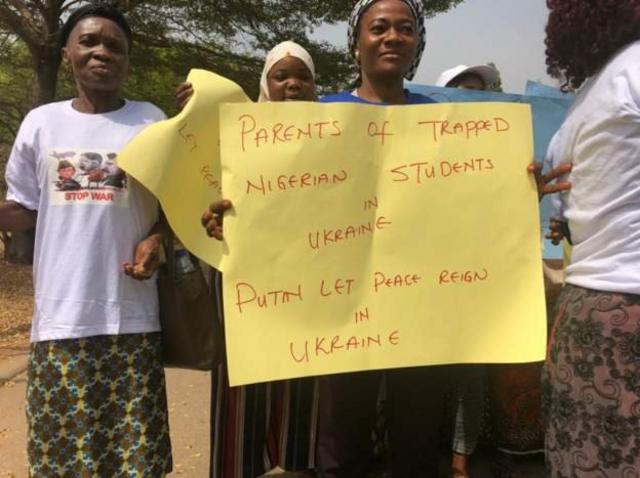 STOP WAR
LET
PARENTS OF TRAPPED
NIGERIAN STUDENTS
IN
UKRAINE
PUTIN LET PEACE REIGN
IN
UKRAINE